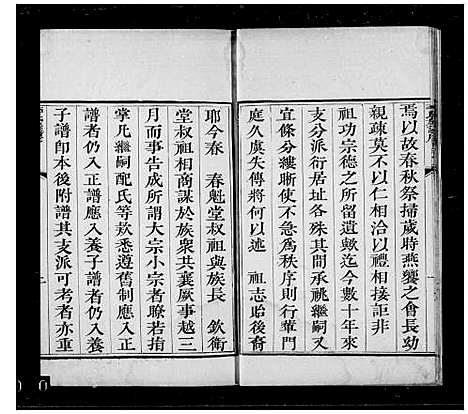 焉以故春秋祭掃歲時燕饗之會長幼
親疎莫不以仁相洽以禮相接詎非
祖功宗德之所留遺歟迄今數十年來
支分派衍居址各殊其間承祧繼嗣又
宜條分縷晰使不急為秩序則行輩門
庭久虞失傳將何以述　祖志貽後裔
耶今春　春魁堂叔祖與族長　欽衛
堂叔祖相商謀於族衆共襄厥事越三
月而事告成所謂大宗小宗者瞭若指
掌凡繼嗣配氏等欵悉遵舊制應入正
譜者仍入正譜應入養子譜仍入養
子譜卽本後附譜其支派可考者亦重